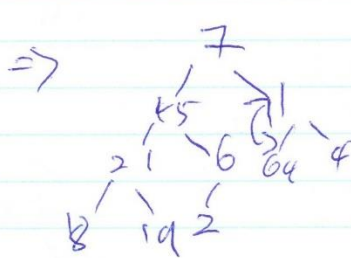 ⇒ 7
45 1
21 6 64 4
18 19 2